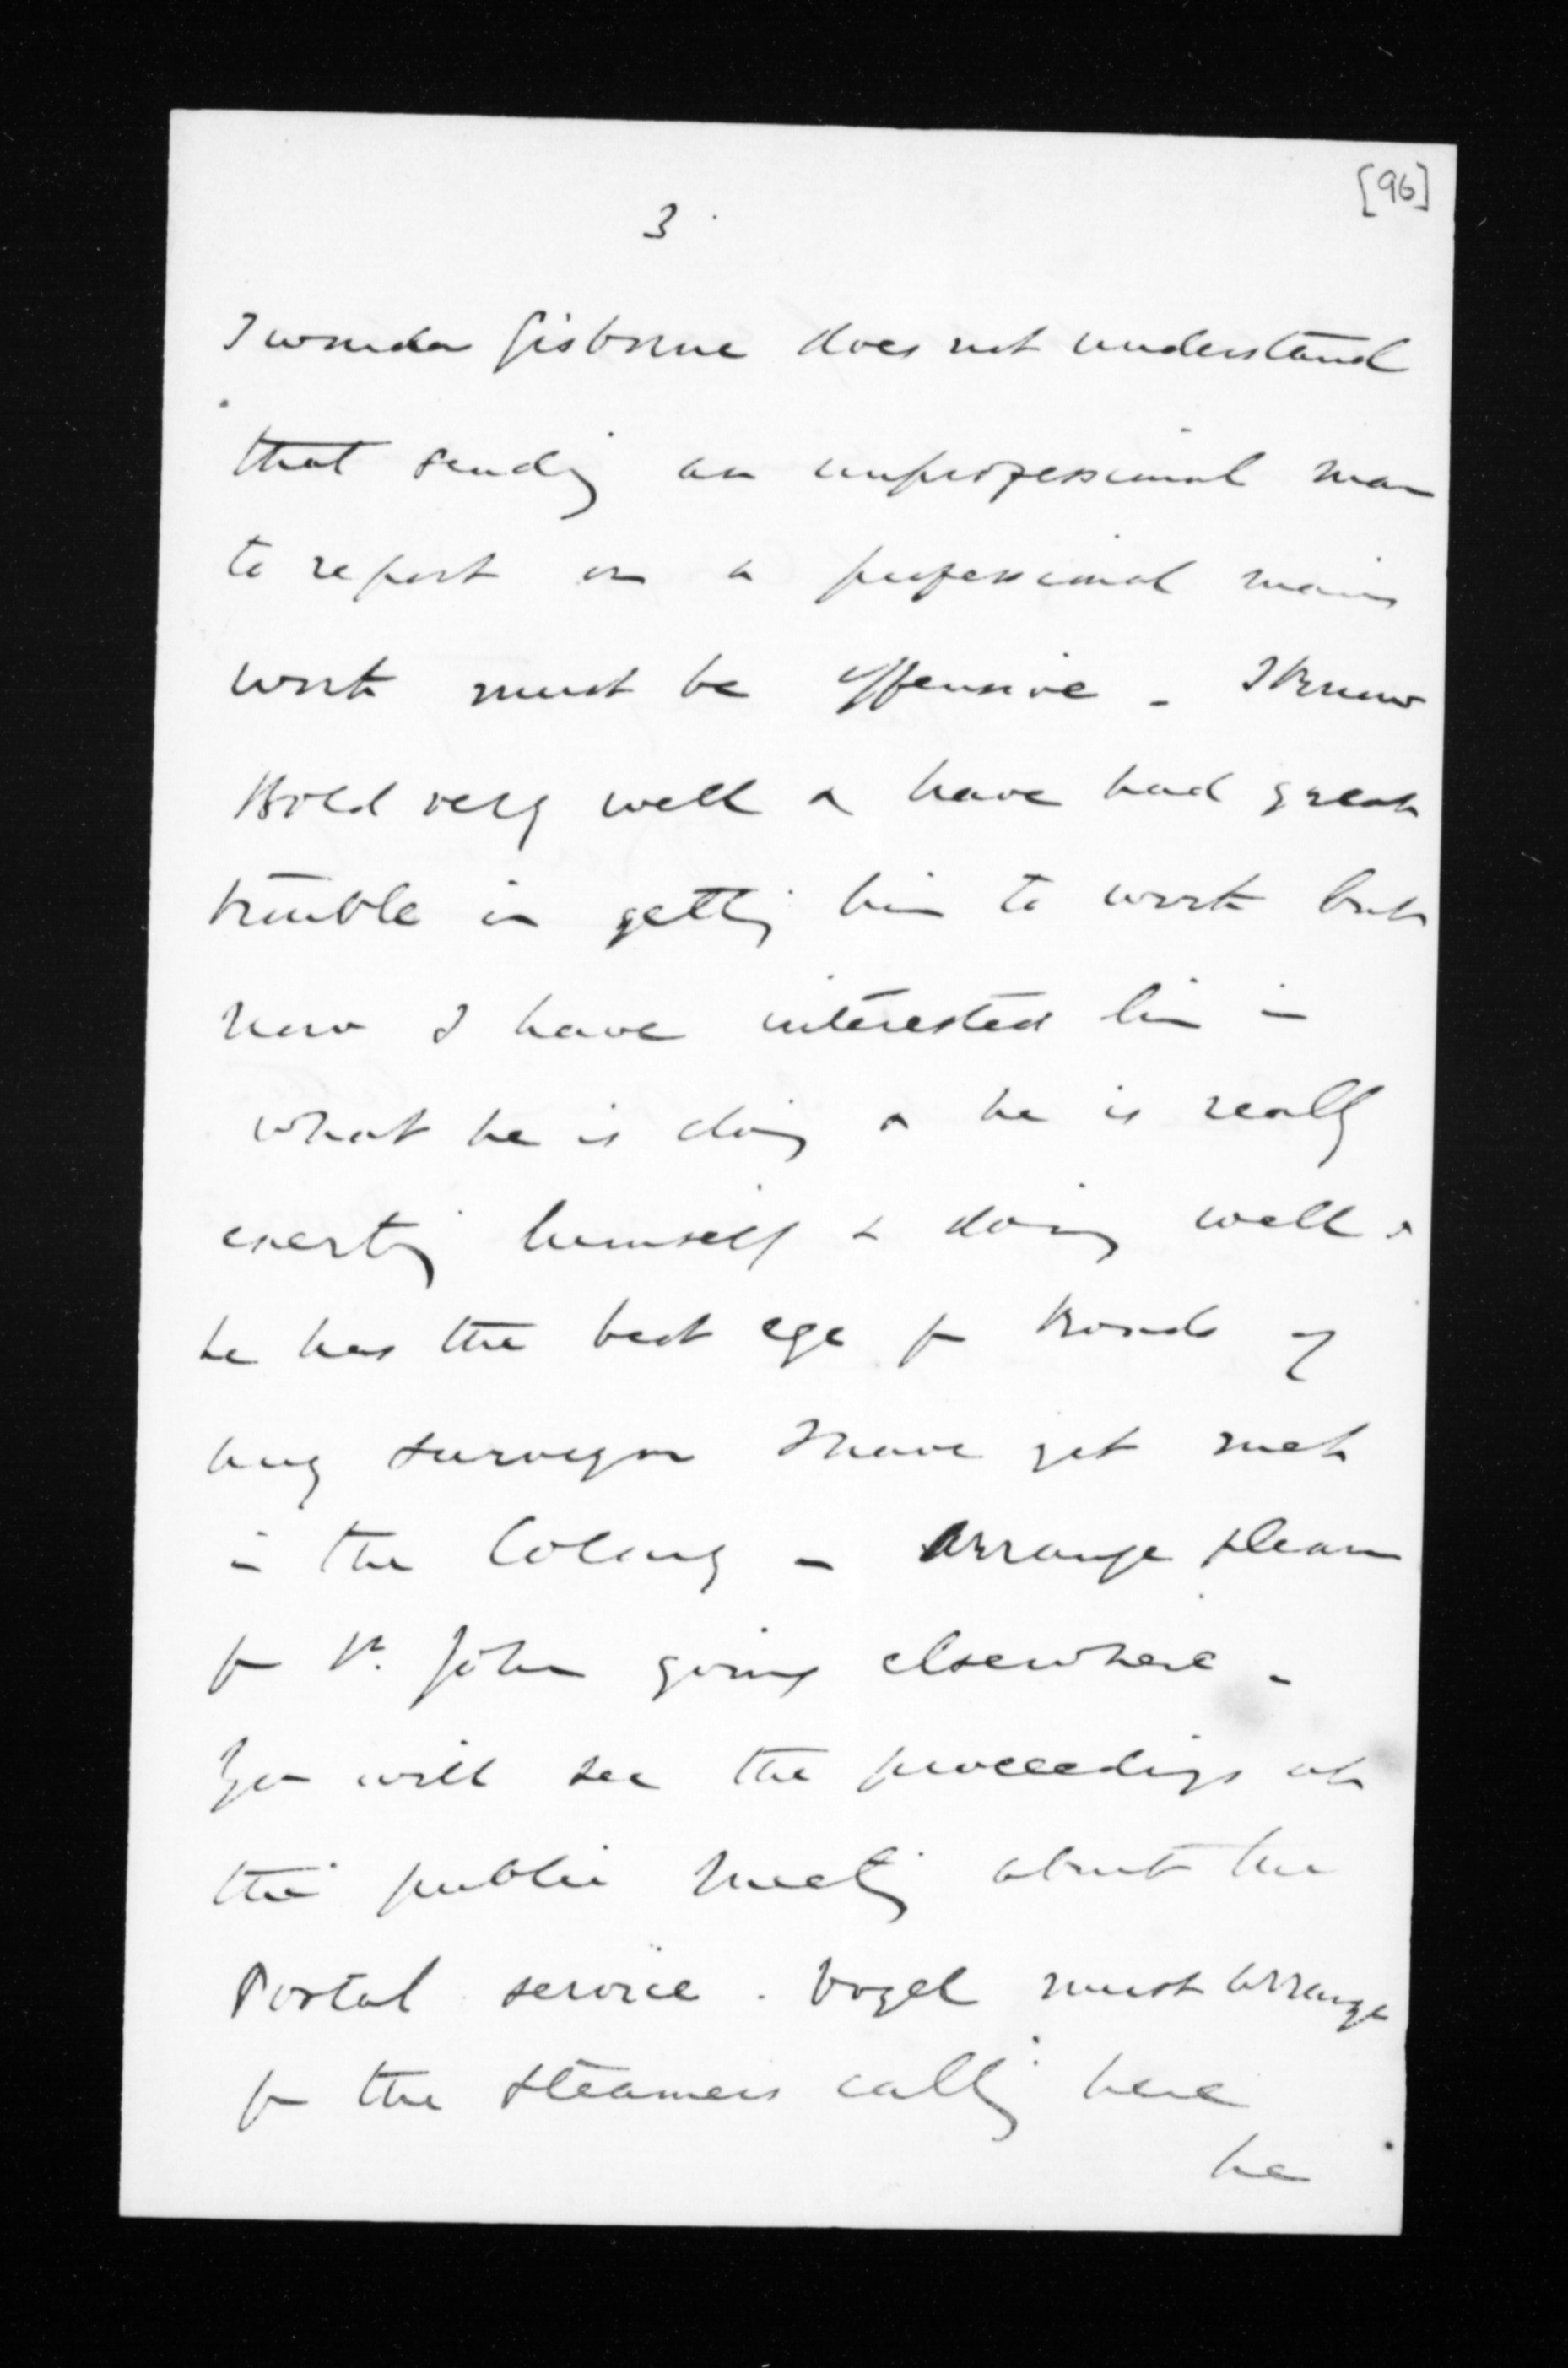 [96]
3
I wonder Gisborne does not understand
that sending an unprofessional man
to report on a professional mans
work must be offensive - I know
Bold very well & have had great
trouble in getting him to work but
now I have interested him in
what he is doing & he is really
exerting himself & doing well &
he has the best eye for Roads of
any surveyor I have yet met
in the Colony - Arrange please
for St. John going elsewhere -
You will see the proceedings at
the public meeting about the
Postal service. Vogel must arrange
for the steamers calling here
he